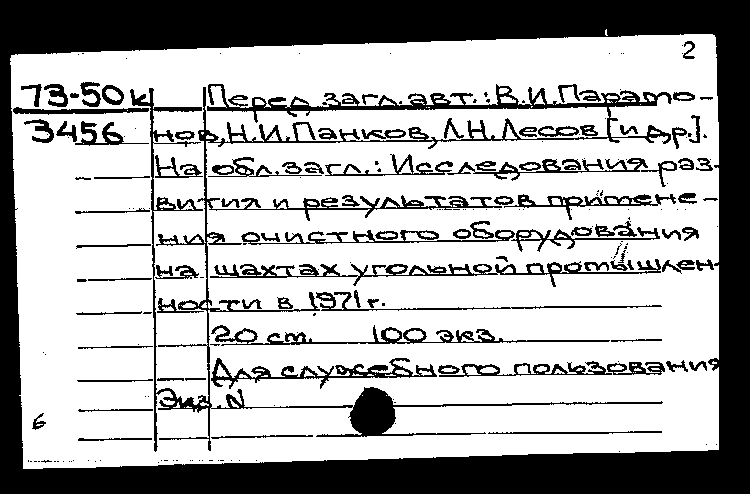 2
73-50к Перед загл. авт.: В.И.Парамо-
3456 нов, Н.И.Панков, Л.Н.Лесов [и др.].
На обл. загл.: Исследования раз-
вития и результатов примене-
ния очистного оборудования
на шахтах угольной промышлен-
ности в 1971 г.
20 см. 100 экз.
Для служебного пользования
Экз. N
6